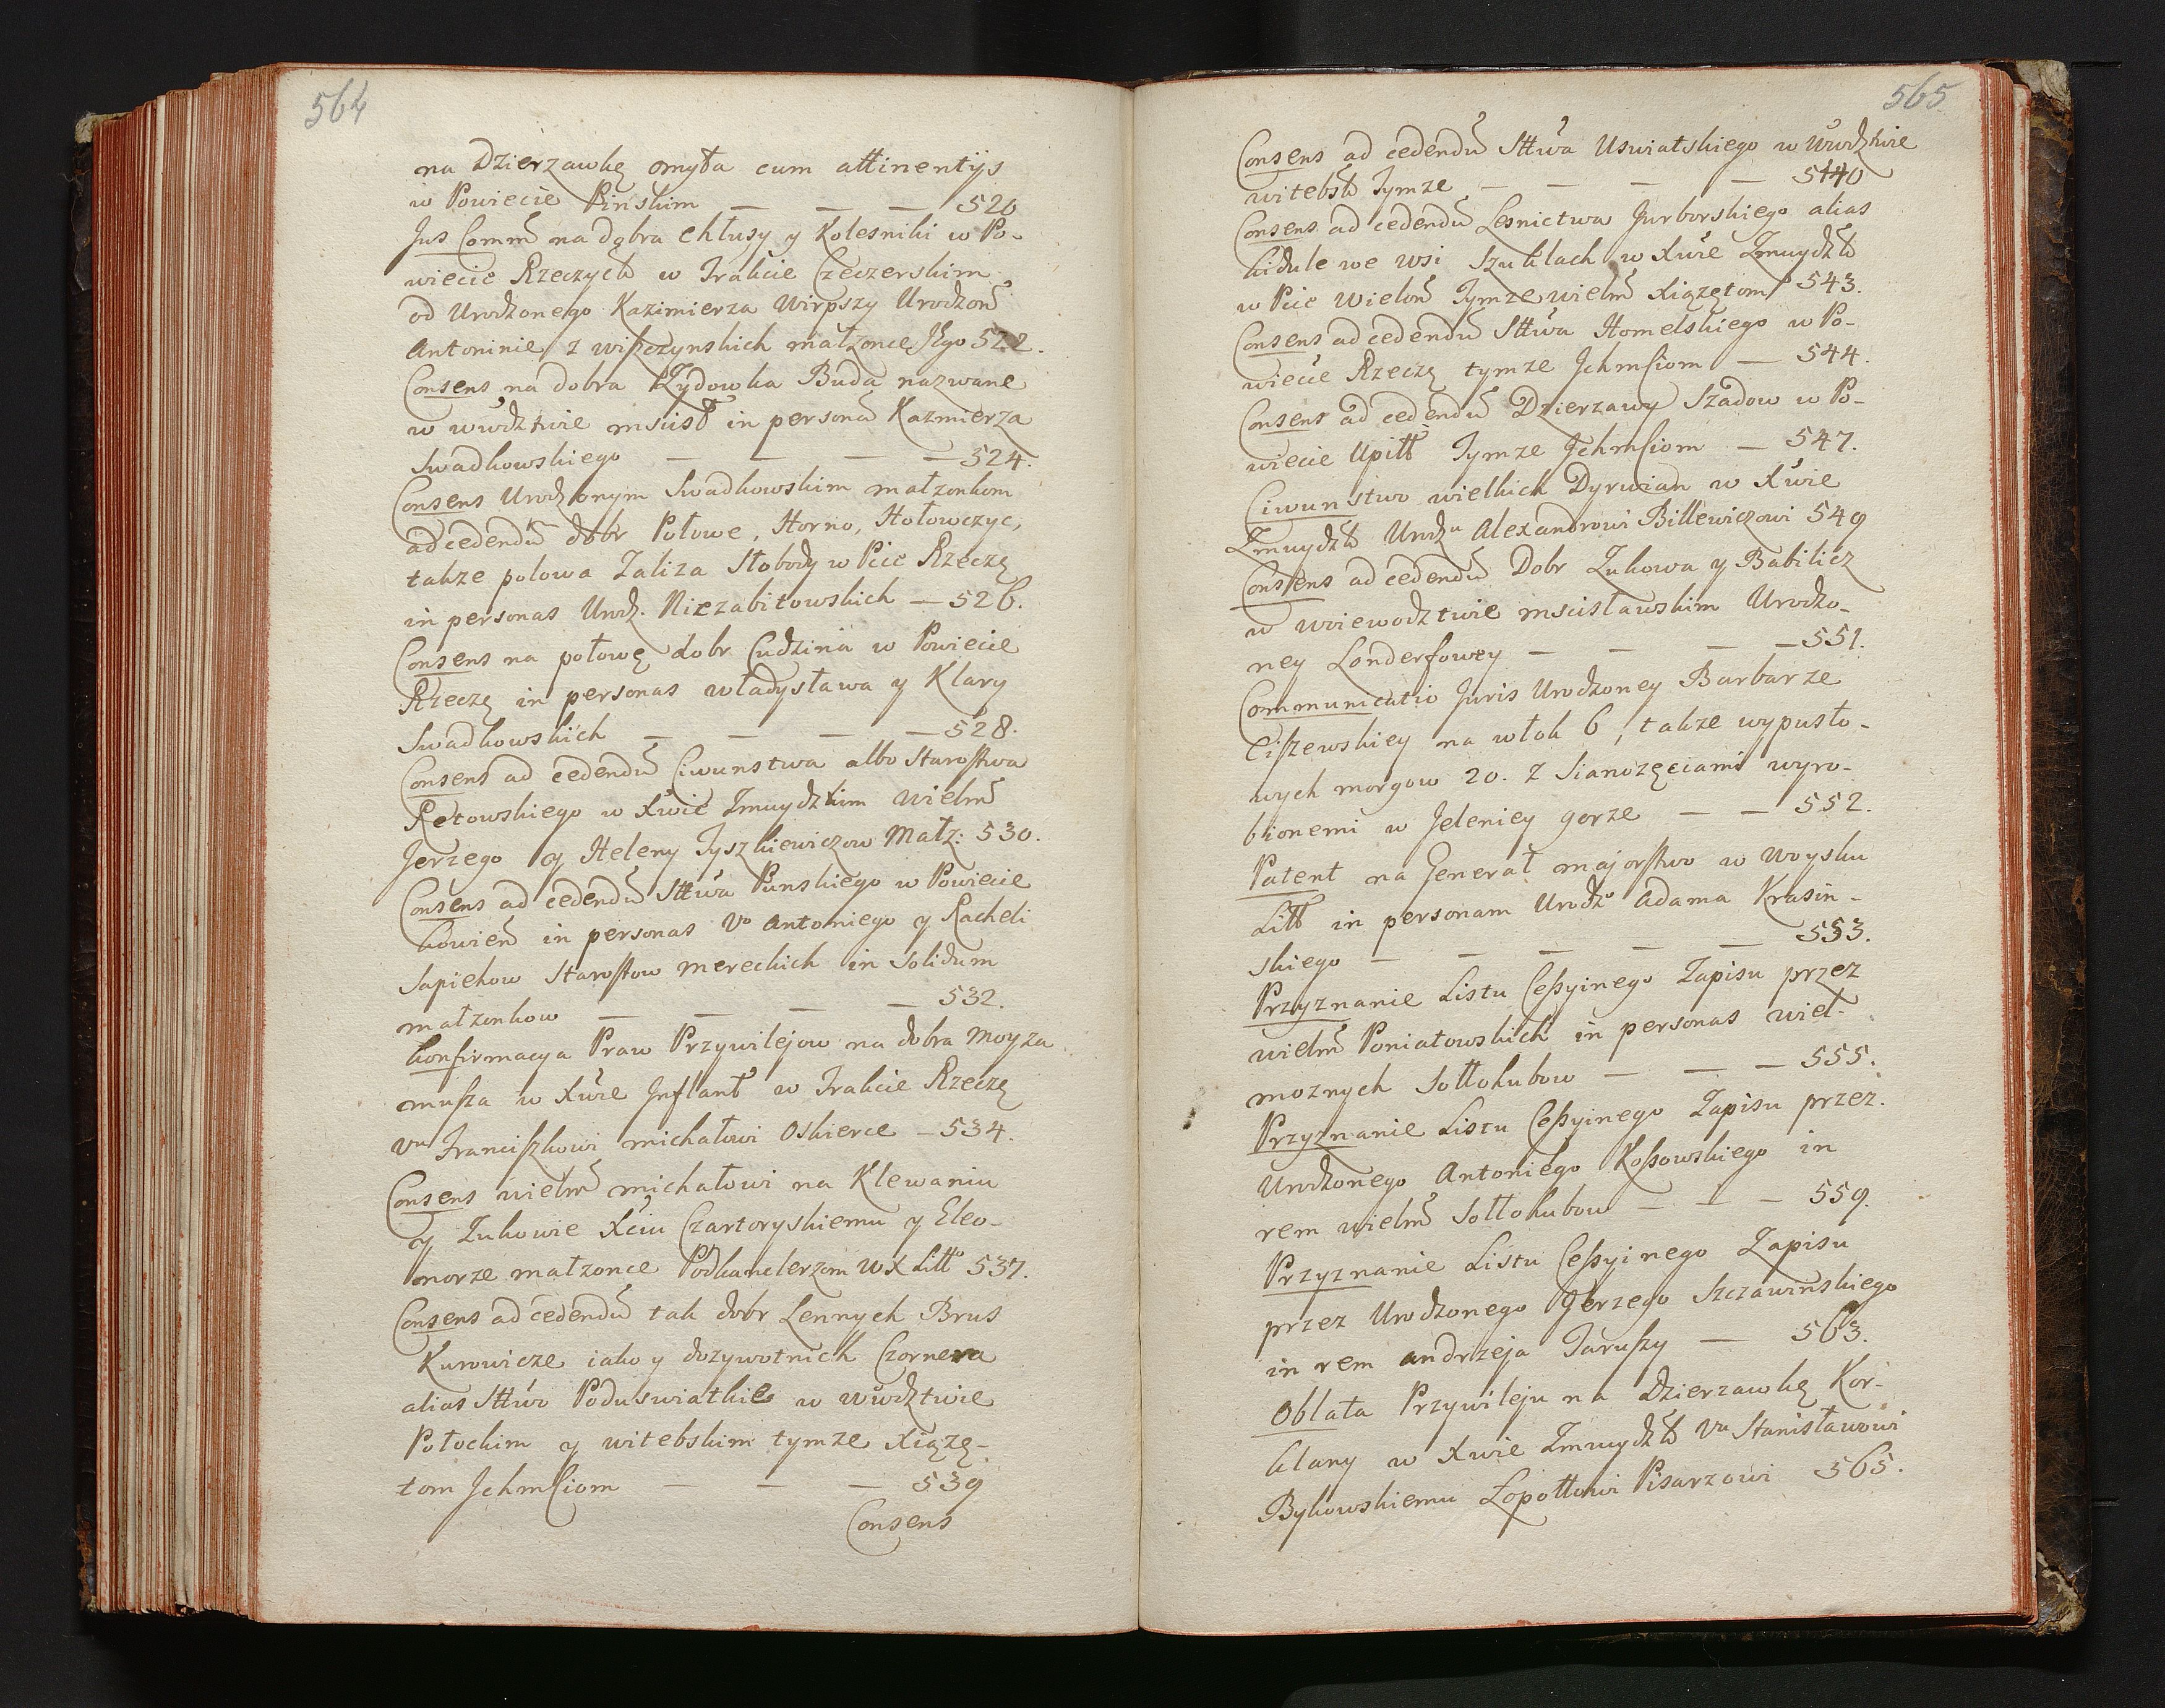 564
na Dzierzawkę omyta cum attinentijs
w Powiecie Pinskim — — — 520
Jus Comm̃ na dobra Chlusy y Kolesniki w Po-
wiecie Rzeczyck w Trakcie Czeczerskim
od Urodzonego Kazimierza Wirpszy Urodzoñ
Antoninie z Wiszczynskich małzonce Jego 522.
Consens na dobra Zydowka Buda nazwane
w wwdztwie mscisł in personã Kazmierza
Swadkowskiego — — — — 524.
Consens Urodzonym Swadkowskim małzonkom
ad cedendũ dobr Połowe, Horno, Hołowczyc,
takze polowa Zaliza Słobody w Pcie Rzeczę
in personas Urodz. Niezabitowskich — 526.
Consens na połowę dobr Cudzina w Powiecie
Rzeczę in personas Władysława y Klary
Swadkowskich — — — — 528.
Consens ad cedendũ Ciwunstwa albo Starostwa
Retowskiego w Xwie Zmuydzkim Wielm̃
Jerzego y Heleny Tyszkiewiczow Małz: 530.
Consens ad cedendũ Sttwa Punskiego w Powiecie
Kowieñ in personas Vo Antoniego y Racheli
Sapiehow Starostow mereckich in Solidum
małzonkow — — — — 532.
Konfirmacya Praw Przywilejow na dobra Moyza
musza w Xwie Inflant w Trakcie Rzeczę
Vu Franciszkowi michałowi Oskierce — 534.
Consens wielm̃ michałowi na Klewaniu
y Zukowie Xciu Czartoryskiemu y Eleo-
norze małzonce Podkanclerzom WX Litt 537.
Consens ad cedendũ tak dobr Lennych Brus
Kurowicze iako y dozywotnich Czornera
alias Sttwo Poduswiatkie w wwdztwie
Połockim y witebskim tymze Xiązę-
tom Jchmściom — — — 539
Consens
565
Consens ad cedendũ Sttwa Uswiatskiego w Wwdztwie
witebsk Tymze — — — — 540
Consens ad cedendũ Lesnictwa Jurborskiego alias
Kidule we wsi Szuklach w Xwie Zmuydzk
w Pcie Wieloñ Tymze wielm̃ Xiązętom 543.
Consens ad cedendũ Sttwa Homelskiego w Po-
wiecie Rzeczę tymze Jchmściom — 544.
Consens ad cedendũ Dzierzawy Szadow w Po-
wiecie Upitt Tymze Jchmściom — 547.
Ciwunstwo wielkich Dyrwian w Xwie
Zmuydzk Urodzu Alexandrowi Billewiczowi 549
Consens ad cedendũ Dobr Zukowa y Babilicz
w woiewodztwie mscisławskim Urodzo-
ney Londerfowey — — — — 551.
Communicatio Juris Urodzoney Barbarze
Ciszewskiey na włok 6, takze wypusto-
wych morgow 20. z Sianozęciami wyro-
bionemi w Jeleniey gorze — — 552.
Patent na Generał majorstwo w woysku
Litt in personam Urodzo Adama Krasin-
skiego — — — — — 553.
Przyznanie Listu Cessyinego Zapisu przez
wielm̃ Poniatowskich in personas wiel-
moznych Sołłohubow — — — 555.
Przyznanie Listu Cessyinego Zapisu przez
Urodzonego Antoniego Kossowskiego in
rem wielm̃ Sołłohubow — — — 559.
Przyznanie Listu Cessyinego Zapisu
przez Urodzonego Jerzego Szczawinskiego
in rem andrzeja Taruszy — 563.
Oblata Przywileju na Dzierzawkę Kor-
klany w Xwie Zmuydzk Vu Stanisławowi
Bykowskiemu Łopottowi Pisarzowi 565.